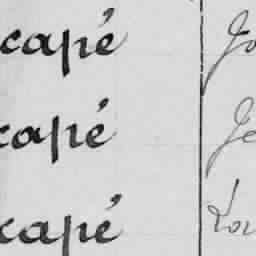 capé Jo
capé Je
capé Lou